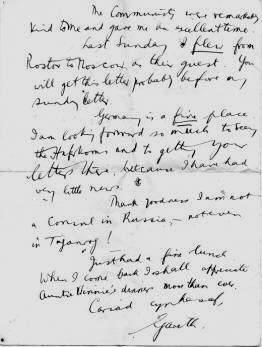 The Communists were remarkably
kind to me and gave me an excellent time.
Last Sunday I flew from
Rostov to Moscow as their guest. You
will get this letter probably before my
Sunday letter.
Germany is a fine place.
I am looking forward so much to seeing
the Haferkorns and to getting your
letters there, because I have had
very little news.
Thank goodness I am not
a Consul in Russia, - not even
in Taganrog!
Just had a fine lunch
When I come back I shall appreciate
Auntie Winnie's dinner more than ever.
Cariad cynhesaf,
Gareth.